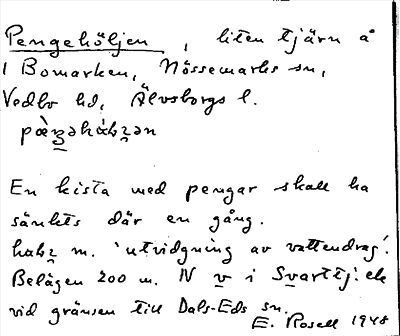 Pengehöljen, liten tjärn å
1 Bomarken, Nössemarks sn,
Vedbo hd, Älvsborgs l.
En kista med pengar skall ha
sänkts där en gång.
m. 'utvidgning av vattendrag'.
Belägen 200 m. N v i Svarttj. ek
vid gränsen till Dals-Eds sn.
E. Rosell 1948